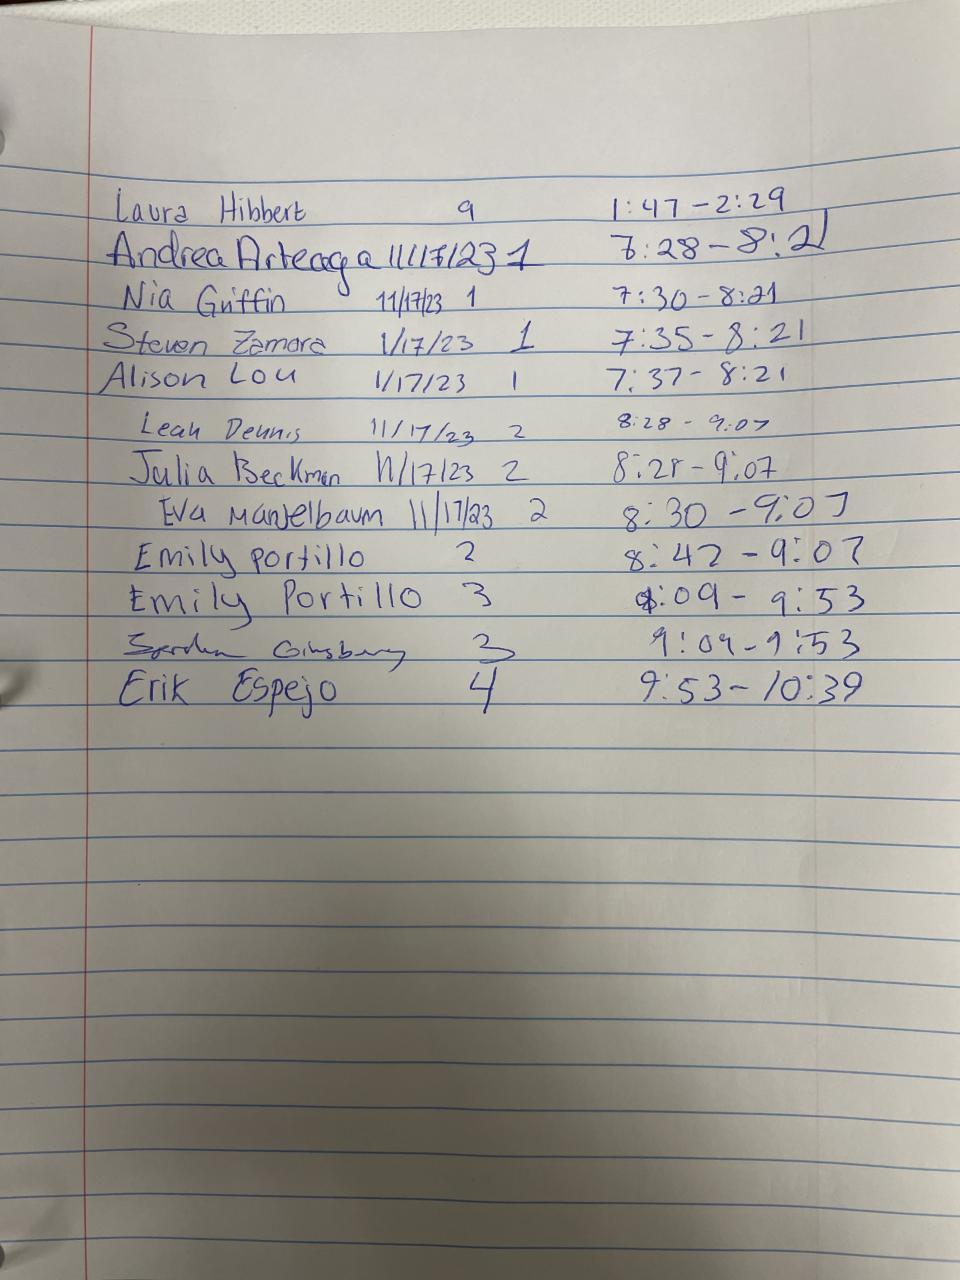 Laura Hibbert 9 1:47-2:29
Andrea Arteaga 11/17/23 1 7:28-8:21
Nia Griffin 11/17/23 1 7:30-8:21
Steven Zamora 1/17/23 1 7:35-8:21
Alison Lou 1/17/23 1 7:37-8:21
Leah Dennis 11/17/23 2 8:28-9:07
Julia Beckman 11/17/23 2 8:28-9:07
Eva Mandelbaum 11/17/23 2 8:30-9:07
Emily Portillo 2 8:42-9:07
Emily Portillo 3 9:09-9:53
Ginsburg 3 9:09-9:53
Erik Espejo 4 9:53-10:39